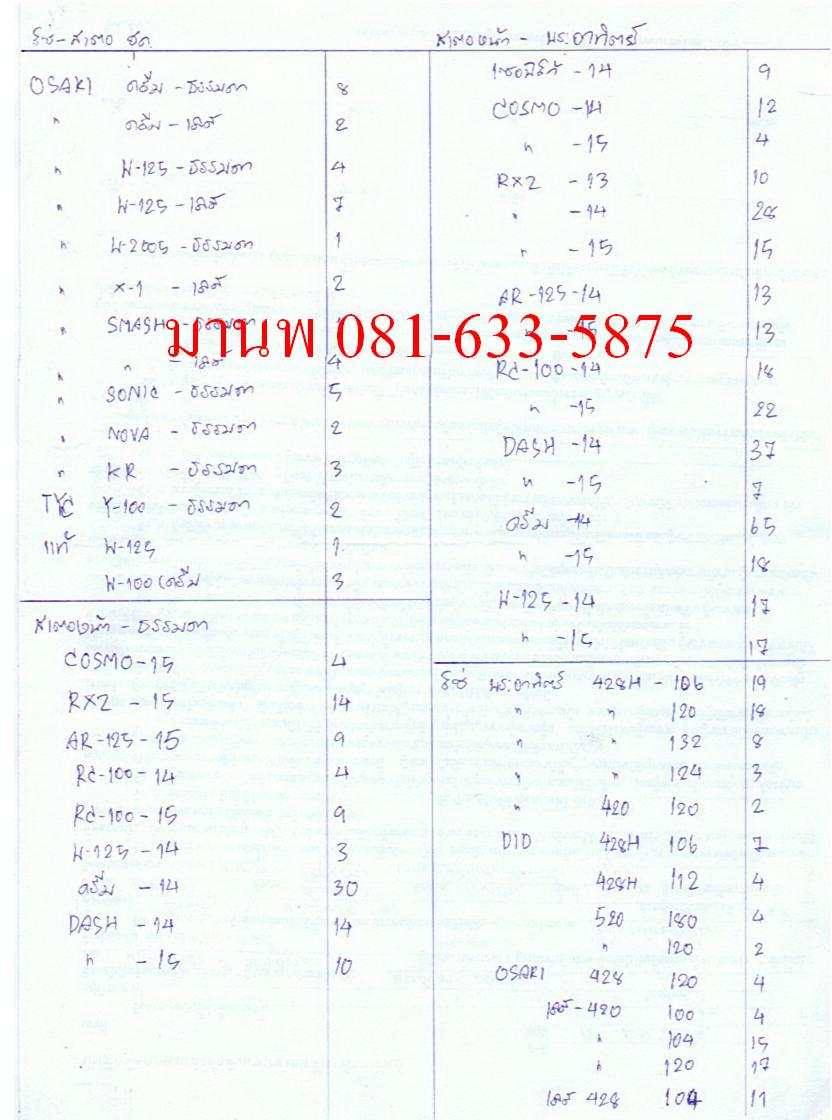 โซ่-สเตอ ชุด
OSAKI ดรีม - ธรรมดา 8
" ดรีม - เลส 2
" W-125 - ธรรมดา 4
" W-125 - เลส 7
" W-2005 - ธรรมดา 1
" X-1 - เลส 2
" SMASH - ธรรมดา
" " - เลส 4
" SONIC - ธรรมดา 5
" NOVA - ธรรมดา 2
" KR - ธรรมดา 3
TYC Y-100 - ธรรมดา 2
แท้ W-125 1
W-100 (ดรีม 3
สเตอหน้า - ธรรมดา
COSMO - 15 4
RX2 - 15 14
AR-125 - 15 9
RC-100 - 14 4
RC-100 - 15 9
W-125 - 14 3
ดรีม - 14 30
DASH - 14 14
" - 15 10
สเตอหน้า - พระอาทิตย์
- 14 9
COSMO - 14 12
" - 15 4
RX2 - 13 10
" - 14 28
" - 15 15
AR-125 - 14 13
" - 15 13
RC-100 - 14 18
" - 15 22
DASH - 14 37
" - 15 7
ดรีม - 14 65
" - 15 18
W-125 - 14 17
" - 15 17
โซ่ พระอาทิตย์ 428H - 106 19
" " 120 18
" " 132 8
" " 124 3
" 420 120 2
DID 428H 106 7
428H 112 4
520 180 4
" 120 2
OSAKI 428 120 4
เลส - 420 100 4
" 104 15
" 120 17
เลส 428 104 11
มานพ 081-633-5875